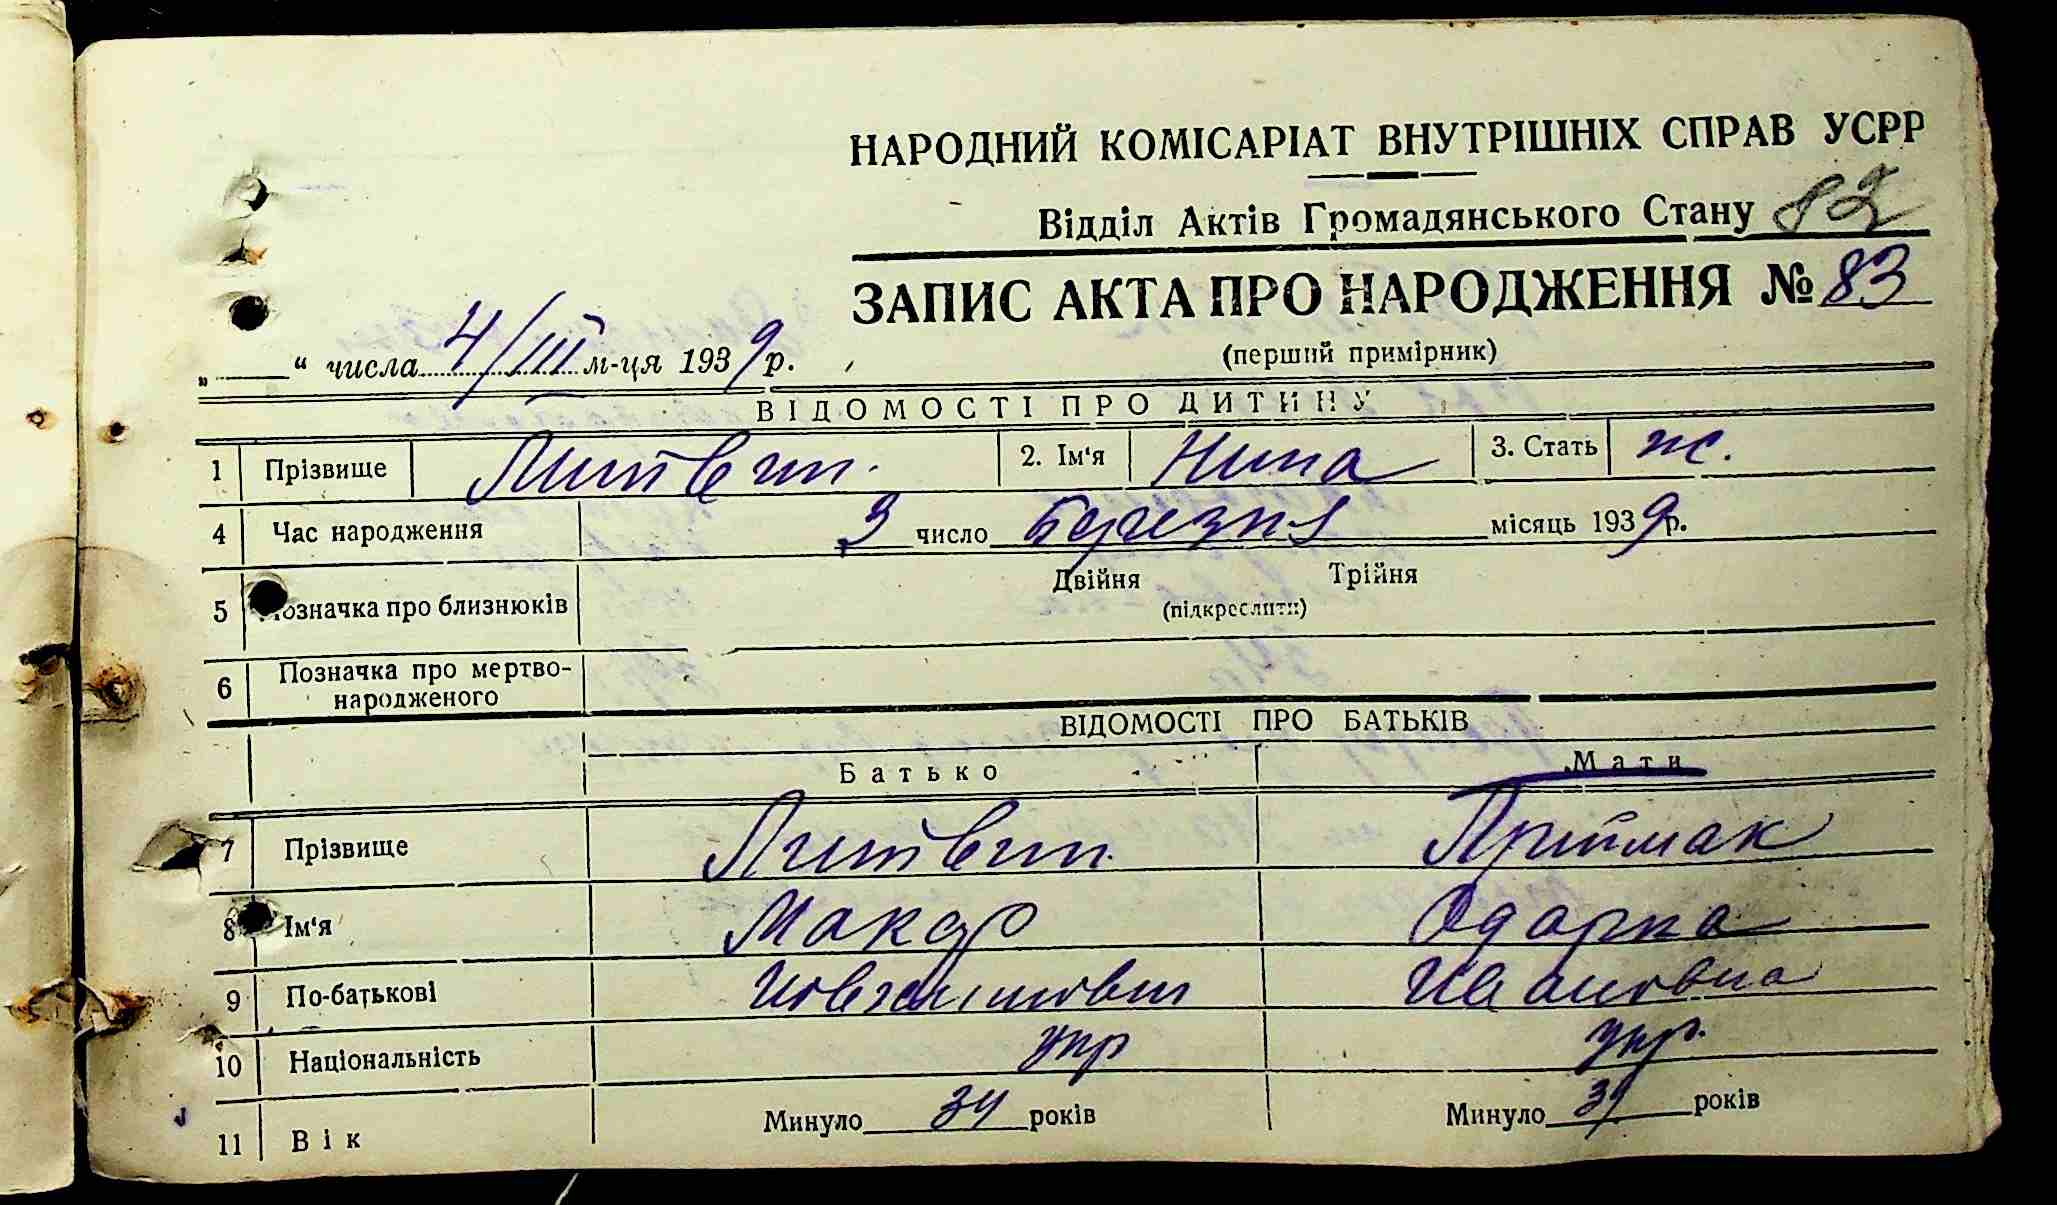 НАРОДНИЙ КОМІСАРІАТ ВНУТРІШНІХ СПРАВ УСРР
Відділ Актів Громадянського Стану 82
ЗАПИС АКТА ПРО НАРОДЖЕННЯ № 83
(перший примірник)
„ “ числа 4/III м-ця 1939 р.
ВІДОМОСТІ ПРО ДИТИНУ
1 Прізвище Литвин. 2. Ім‘я Нина 3. Стать ж.
4 Час народження 3 число Березня місяць 1939 р.
Двійня Трійня
5 Позначка про близнюків (підкреслити)
6 Позначка про мертво-
народженого
ВІДОМОСТІ ПРО БАТЬКІВ
Батько Мати
7 Прізвище Литвин. Приймак
8 Ім‘я Макар Одарка
9 По-батькові Ивановна
10 Національність укр укр.
11 Вік Минуло 34 років Минуло років